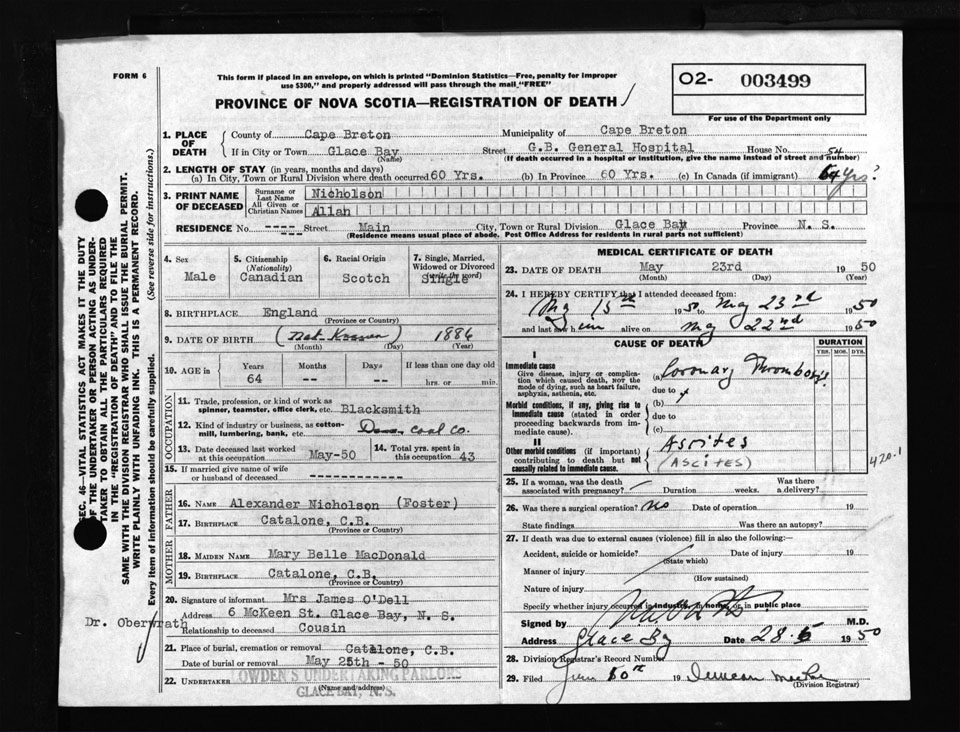 FORM 6
This form if placed in an envelope, on which is printed "Dominion Statistics—Free, penalty for improper
use $300," and properly addressed will pass through the mail "FREE"
O2- 003499
For use of the Department only
PROVINCE OF NOVA SCOTIA—REGISTRATION OF DEATH
SEC. 46—VITAL STATISTICS ACT MAKES IT THE DUTY
OF THE UNDERTAKER OR PERSON ACTING AS UNDER-
TAKER TO OBTAIN ALL THE PARTICULARS REQUIRED
IN THE "REGISTRATION OF DEATH" AND TO FILE THE
SAME WITH THE DIVISION REGISTRAR WHO SHALL ISSUE THE BURIAL PERMIT.
WRITE PLAINLY WITH UNFADING INK. THIS IS A PERMANENT RECORD.
Every item of information should be carefully supplied. (See reverse side for instructions.)
1. PLACE OF DEATH
County of Cape Breton Municipality of Cape Breton
If in City or Town Glace Bay Street G.B. General Hospital House No. 54
(Name) (If death occurred in a hospital or institution, give the name instead of street and number)
2. LENGTH OF STAY (in years, months and days)
(a) In City, Town or Rural Division where death occurred 60 Yrs. (b) In Province 60 Yrs. (c) In Canada (if immigrant) 64 yrs?
3. PRINT NAME OF DECEASED
Surname or Last Name Nicholson
All Given or Christian Names Allan
RESIDENCE No. ---- Street Main City, Town or Rural Division Glace Bay Province N. S.
(Residence means usual place of abode. Post Office Address for residents in rural parts not sufficient)
4. Sex Male
5. Citizenship (Nationality) Canadian
6. Racial Origin Scotch
7. Single, Married, Widowed or Divorced (write the word) Single
8. BIRTHPLACE England
(Province or Country)
9. DATE OF BIRTH (Not Known) 1886
(Month) (Day) (Year)
10. AGE in Years Months Days If less than one day old
64 -- -- hrs. or min.
OCCUPATION
11. Trade, profession, or kind of work as
spinner, teamster, office clerk, etc. Blacksmith
12. Kind of industry or business, as cotton-
mill, lumbering, bank, etc. Dom. Coal Co.
13. Date deceased last worked at this occupation May-50
14. Total yrs. spent in this occupation 43
15. If married give name of wife
or husband of deceased ----------------
FATHER
16. NAME Alexander Nicholson (Foster)
17. BIRTHPLACE Catalone, C.B.
(Province or Country)
MOTHER
18. MAIDEN NAME Mary Belle MacDonald
19. BIRTHPLACE Catalone, C.B.
(Province or Country)
20. Signature of informant Mrs James O'Dell
Address 6 McKeen St. Glace Bay, N. S.
Dr. Oberwrath
Relationship to deceased Cousin
21. Place of burial, cremation or removal Catalone, C.B.
Date of burial or removal May 25th - 50
22. UNDERTAKER OWDEN'S UNDERTAKING PARLORS
(Name and address)
GLACE BAY, N. S.
MEDICAL CERTIFICATE OF DEATH
23. DATE OF DEATH May 23rd 1950
(Month) (Day) (Year)
24. I HEREBY CERTIFY that I attended deceased from:
May 15th 1950 to May 23rd 1950
and last saw him alive on May 22nd 1950
CAUSE OF DEATH DURATION
YRS. MOS. DYS.
I
Immediate cause
Give disease, injury or complica-
tion which caused death, NOT the
mode of dying, such as heart failure,
asphyxia, asthenia, etc.
(a) Coronary Thrombosis
due to
(b)
Morbid conditions, if any, giving rise to
immediate cause (stated in order
proceeding backwards from im-
mediate cause).
due to
(c)
II
Other morbid conditions (if important)
contributing to death but not
causally related to immediate cause.
Ascites
(ASCITES)
420.1
25. If a woman, was the death
associated with pregnancy? Duration weeks. Was there a delivery?
26. Was there a surgical operation? No Date of operation 19
State findings Was there an autopsy?
27. If death was due to external causes (violence) fill in also the following:
Accident, suicide or homicide? Date of injury 19
(State which)
Manner of injury
(How sustained)
Nature of injury
Specify whether injury occurred in industry, in home, or in public place
Signed by M.D.
Address Glace Bay Date 28-5 1950
28. Division Registrar's Record Number
29. Filed 19 Duncan
(Division Registrar)